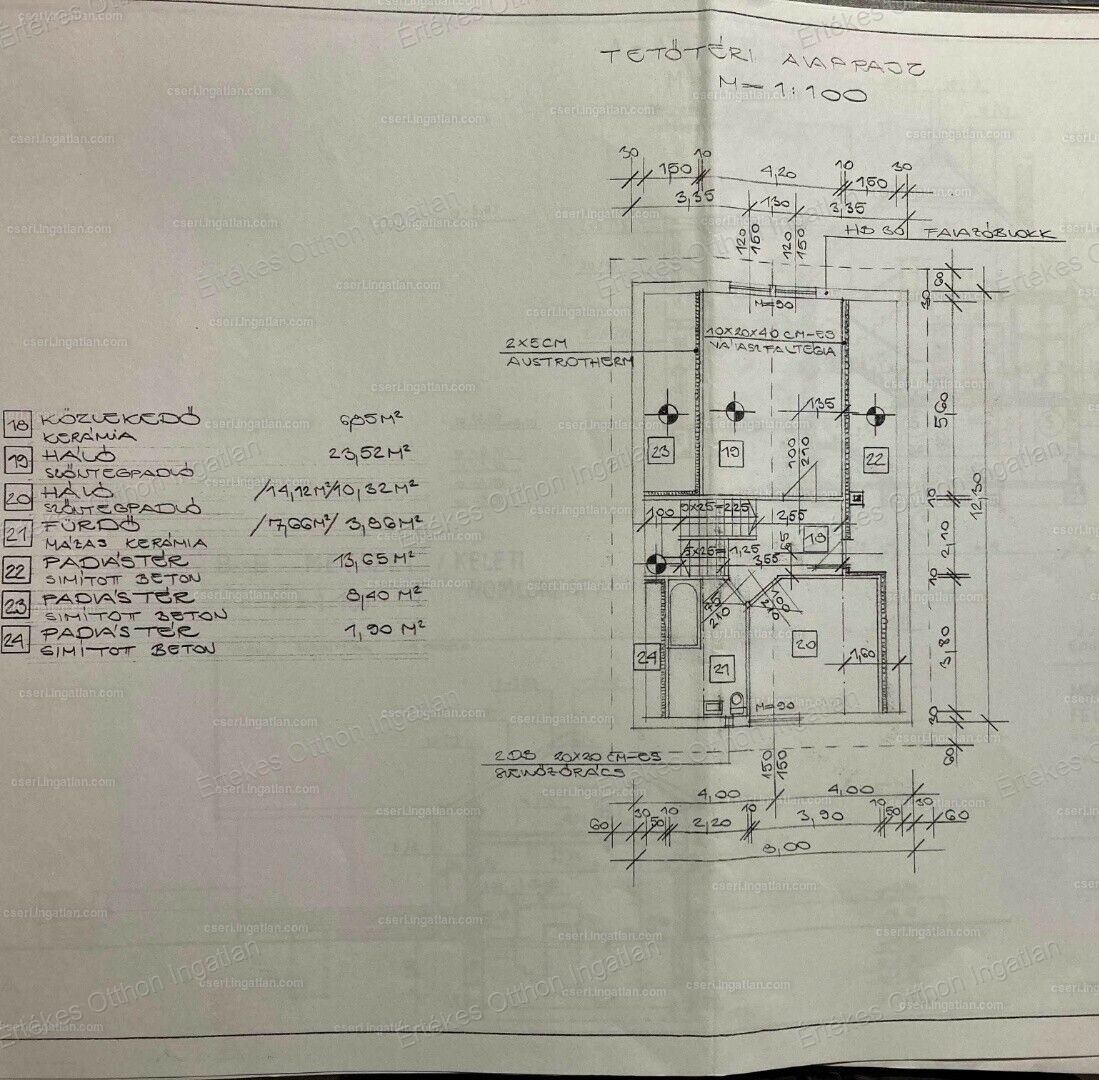 TETŐTÉRI ALAPRAJZ
M=1:100
30 150 10 4,20 10 150 30
3,35 130 3,35
120 150 120 150
HB 30 FALAZÓBLOKK
M=90
2X5CM
AUSTROTHERM
10X20X40 CM-ES
VÁLASZFALTÉGLA
135
100 210
23 19 22
18 KÖZLEKEDŐ 6,85 M²
KERÁMIA
19 HÁLÓ 23,52 M²
SZŐNYEGPADLÓ
20 HÁLÓ /14,12M²/10,32M²
SZŐNYEGPADLÓ
21 FÜRDŐ /7,66M²/ 3,86M²
MÁZAS KERÁMIA
22 PADLÁSTÉR 13,65 M²
SIMÍTOTT BETON
23 PADLÁSTÉR 8,40 M²
SIMÍTOTT BETON
24 PADLÁSTÉR 1,90 M²
SIMÍTOTT BETON
100 9X25=2,25 2,55
18
5X25=1,25 3,55 65
75 210
90 210
24 21 20
1,60
M=90
60 30 5,60 10 2,10 10 3,80 30 60
12,30
2DB 20X20 CM-ES
SZELLŐZŐRÁCS
150 150
4,00 4,00
60 30 50 10 2,20 10 3,90 10 50 30 60
8,00
Értékes Otthon Ingatlan
cseri.ingatlan.com